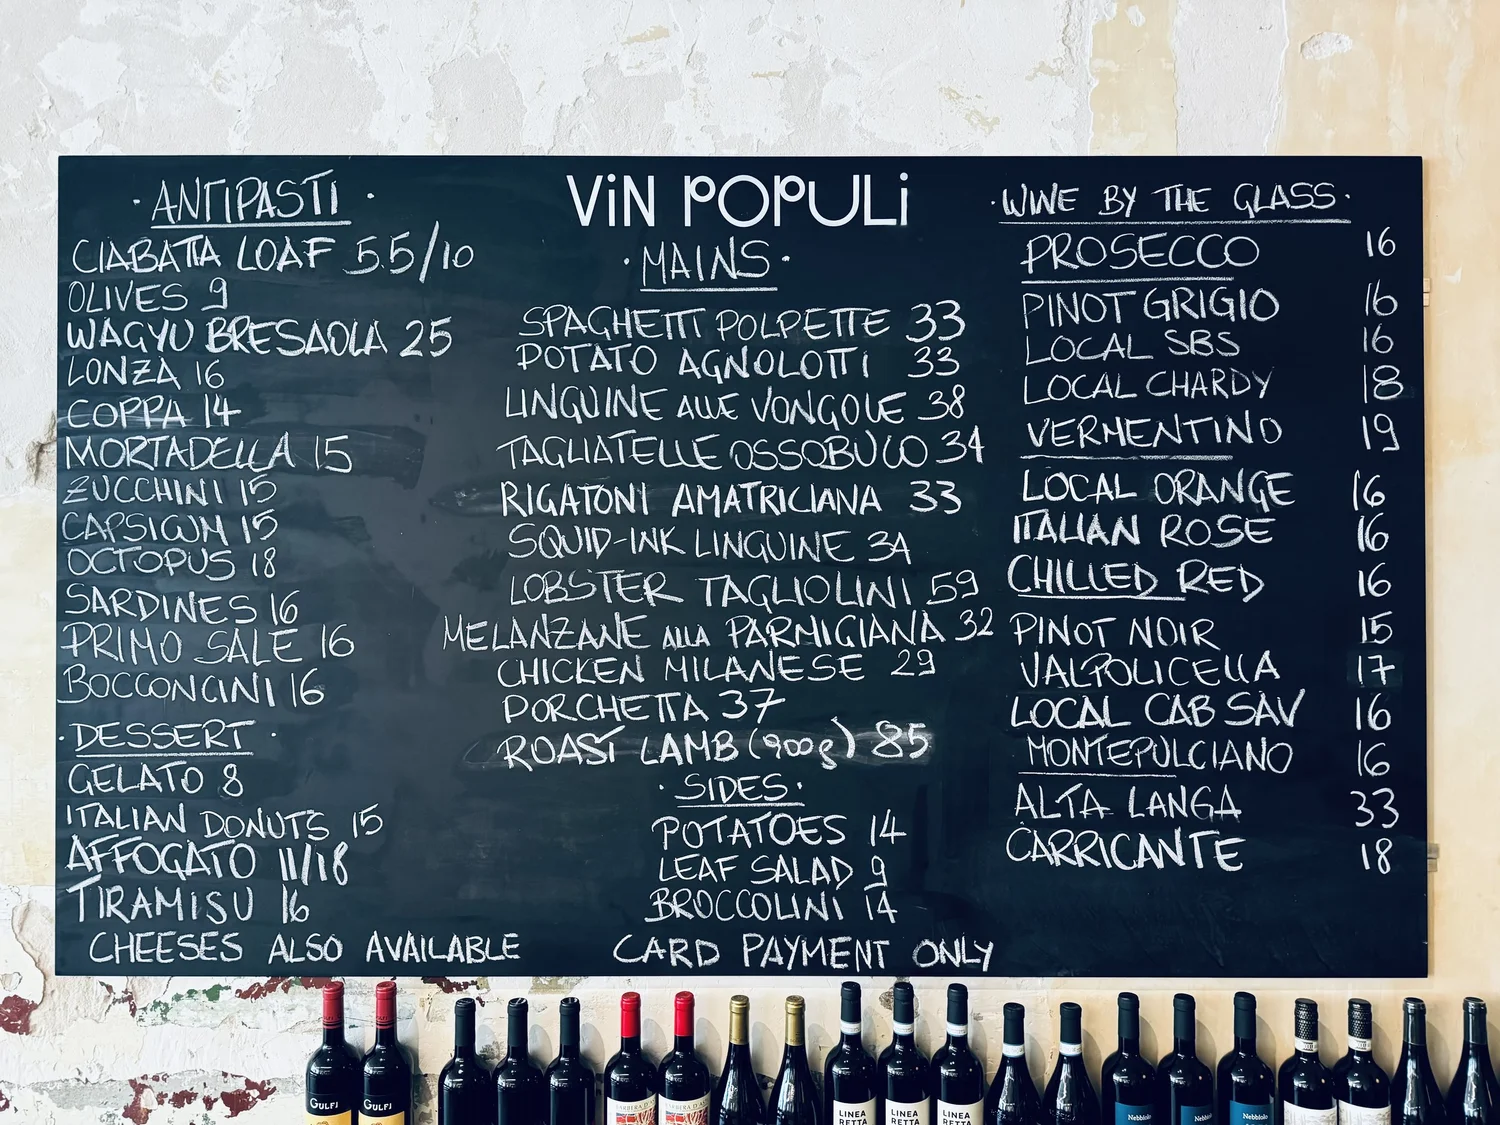 VIN POPULI
· ANTIPASTI ·
CIABATTA LOAF 5.5/10
OLIVES 9
WAGYU BRESAOLA 25
LONZA 16
COPPA 14
MORTADELLA 15
ZUCCHINI 15
CAPSICUM 15
OCTOPUS 18
SARDINES 16
PRIMO SALE 16
BOCCONCINI 16
· DESSERT ·
GELATO 8
ITALIAN DONUTS 15
AFFOGATO 11/18
TIRAMISU 16
CHEESES ALSO AVAILABLE
· MAINS ·
SPAGHETTI POLPETTE 33
POTATO AGNOLOTTI 33
LINGUINE ALLE VONGOLE 38
TAGLIATELLE OSSOBUCO 34
RIGATONI AMATRICIANA 33
SQUID-INK LINGUINE 34
LOBSTER TAGLIOLINI 59
MELANZANE ALLA PARMIGIANA 32
CHICKEN MILANESE 29
PORCHETTA 37
ROAST LAMB (900g) 85
· SIDES ·
POTATOES 14
LEAF SALAD 9
BROCCOLINI 14
CARD PAYMENT ONLY
· WINE BY THE GLASS ·
PROSECCO 16
PINOT GRIGIO 16
LOCAL SBS 16
LOCAL CHARDY 18
VERMENTINO 19
LOCAL ORANGE 16
ITALIAN ROSE 16
CHILLED RED 16
PINOT NOIR 15
VALPOLICELLA 17
LOCAL CAB SAV 16
MONTEPULCIANO 16
ALTA LANGA 33
CARRICANTE 18
GULFI
GULFI
BARBERA D'A
LINEA
RETTA
LINEA
RETTA
LINEA
RETTA
Nebbiolo
Nebbiolo
Nebbiolo